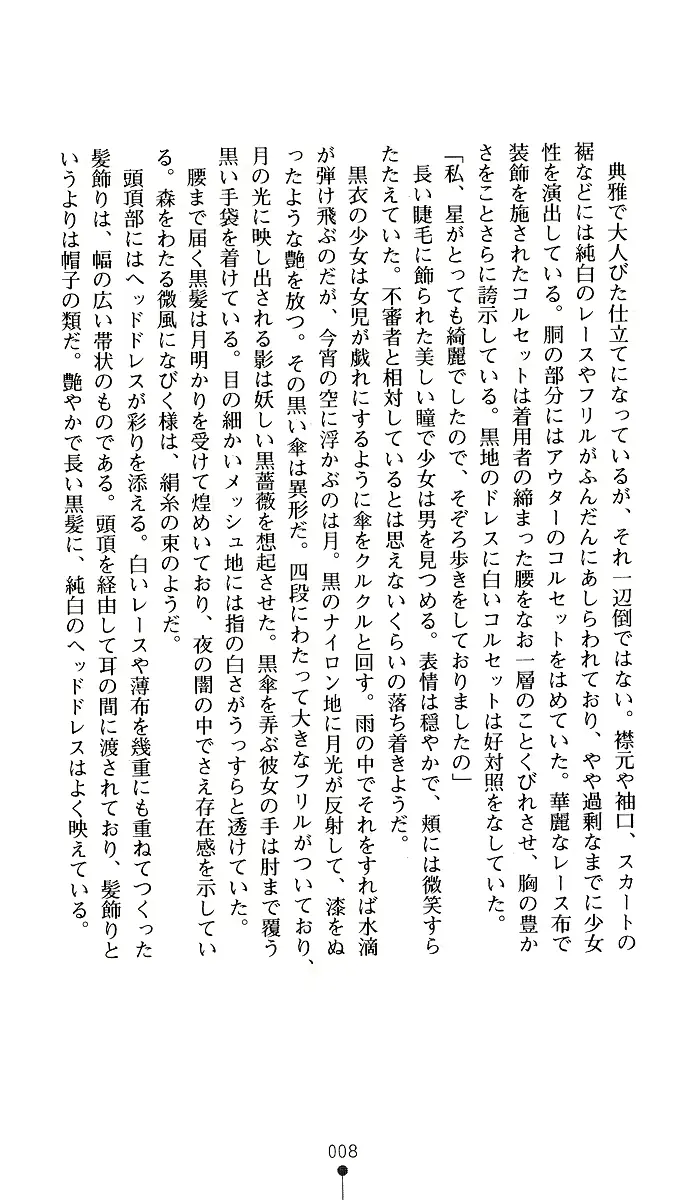 典雅で大人びた仕立てになっているが、それ一辺倒ではない。襟元や袖口、スカートの
裾などには純白のレースやフリルがふんだんにあしらわれており、やや過剰なまでに少女
性を演出している。胴の部分にはアウターのコルセットをはめていた。華麗なレース布で
装飾を施されたコルセットは着用者の締まった腰をなお一層のことくびれさせ、胸の豊か
さをことさらに誇示している。黒地のドレスに白いコルセットは好対照をなしていた。
「私、星がとっても綺麗でしたので、そぞろ歩きをしておりましたの」
　長い睫毛に飾られた美しい瞳で少女は男を見つめる。表情は穏やかで、頬には微笑すら
たたえていた。不審者と相対しているとは思えないくらいの落ち着きようだ。
　黒衣の少女は女児が戯れにするように傘をクルクルと回す。雨の中でそれをすれば水滴
が弾け飛ぶのだが、今宵の空に浮かぶのは月。黒のナイロン地に月光が反射して、漆をぬ
ったような艶を放つ。その黒い傘は異形だ。四段にわたって大きなフリルがついており、
月の光に映し出される影は妖しい黒薔薇を想起させた。黒傘を弄ぶ彼女の手は肘まで覆う
黒い手袋を着けている。目の細かいメッシュ地には指の白さがうっすらと透けていた。
　腰まで届く黒髪は月明かりを受けて煌めいており、夜の闇の中でさえ存在感を示してい
る。森をわたる微風になびく様は、絹糸の束のようだ。
　頭頂部にはヘッドドレスが彩りを添える。白いレースや薄布を幾重にも重ねてつくった
髪飾りは、幅の広い帯状のものである。頭頂を経由して耳の間に渡されており、髪飾りと
いうよりは帽子の類だ。艶やかで長い黒髪に、純白のヘッドドレスはよく映えている。
008